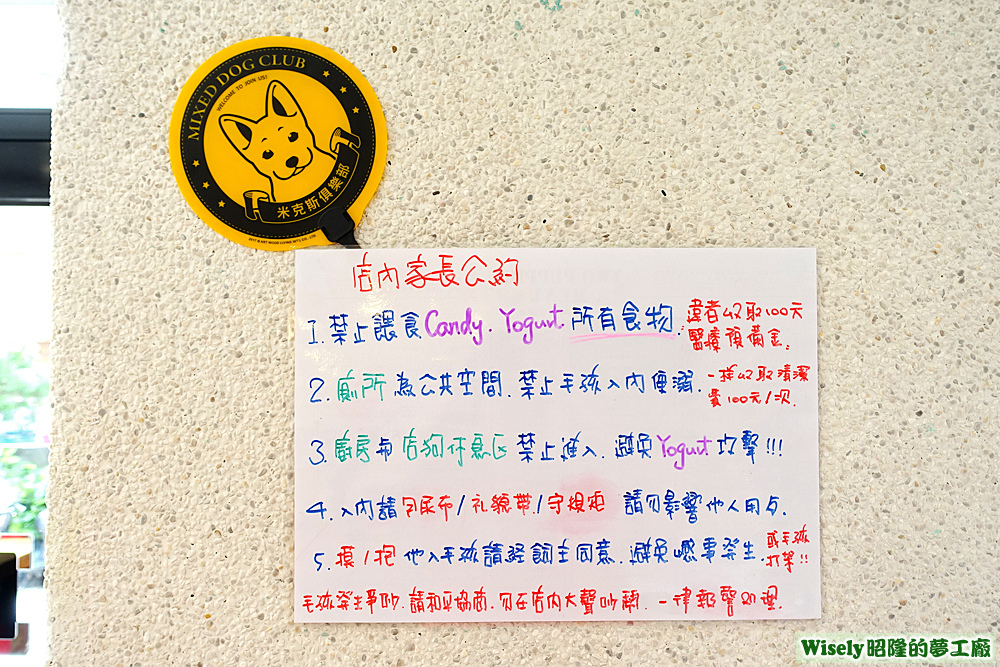 MIXED DOG CLUB
WELCOME TO JOIN US!
米克斯俱樂部
店內家長公約
1. 禁止餵食Candy. Yogurt 所有食物. 違者收取100元
醫療預備金.
2. 廁所為公共空間. 禁止毛孩入內便溺. 一摊收取清潔
費100元/次.
3. 廚房與店狗休息區禁止進入. 避免Yogurt攻擊!!!
4. 入內請包尿布/礼貌帶/守規矩 請勿影響他人用餐.
5. 摸/抱他人毛孩請經飼主同意. 避免憾事發生. 或毛孩
打架!!
毛孩發生爭吵. 請和平協商. 勿在店內大聲吵鬧. 一律報警處理.
Wisely昭隆的夢工廠